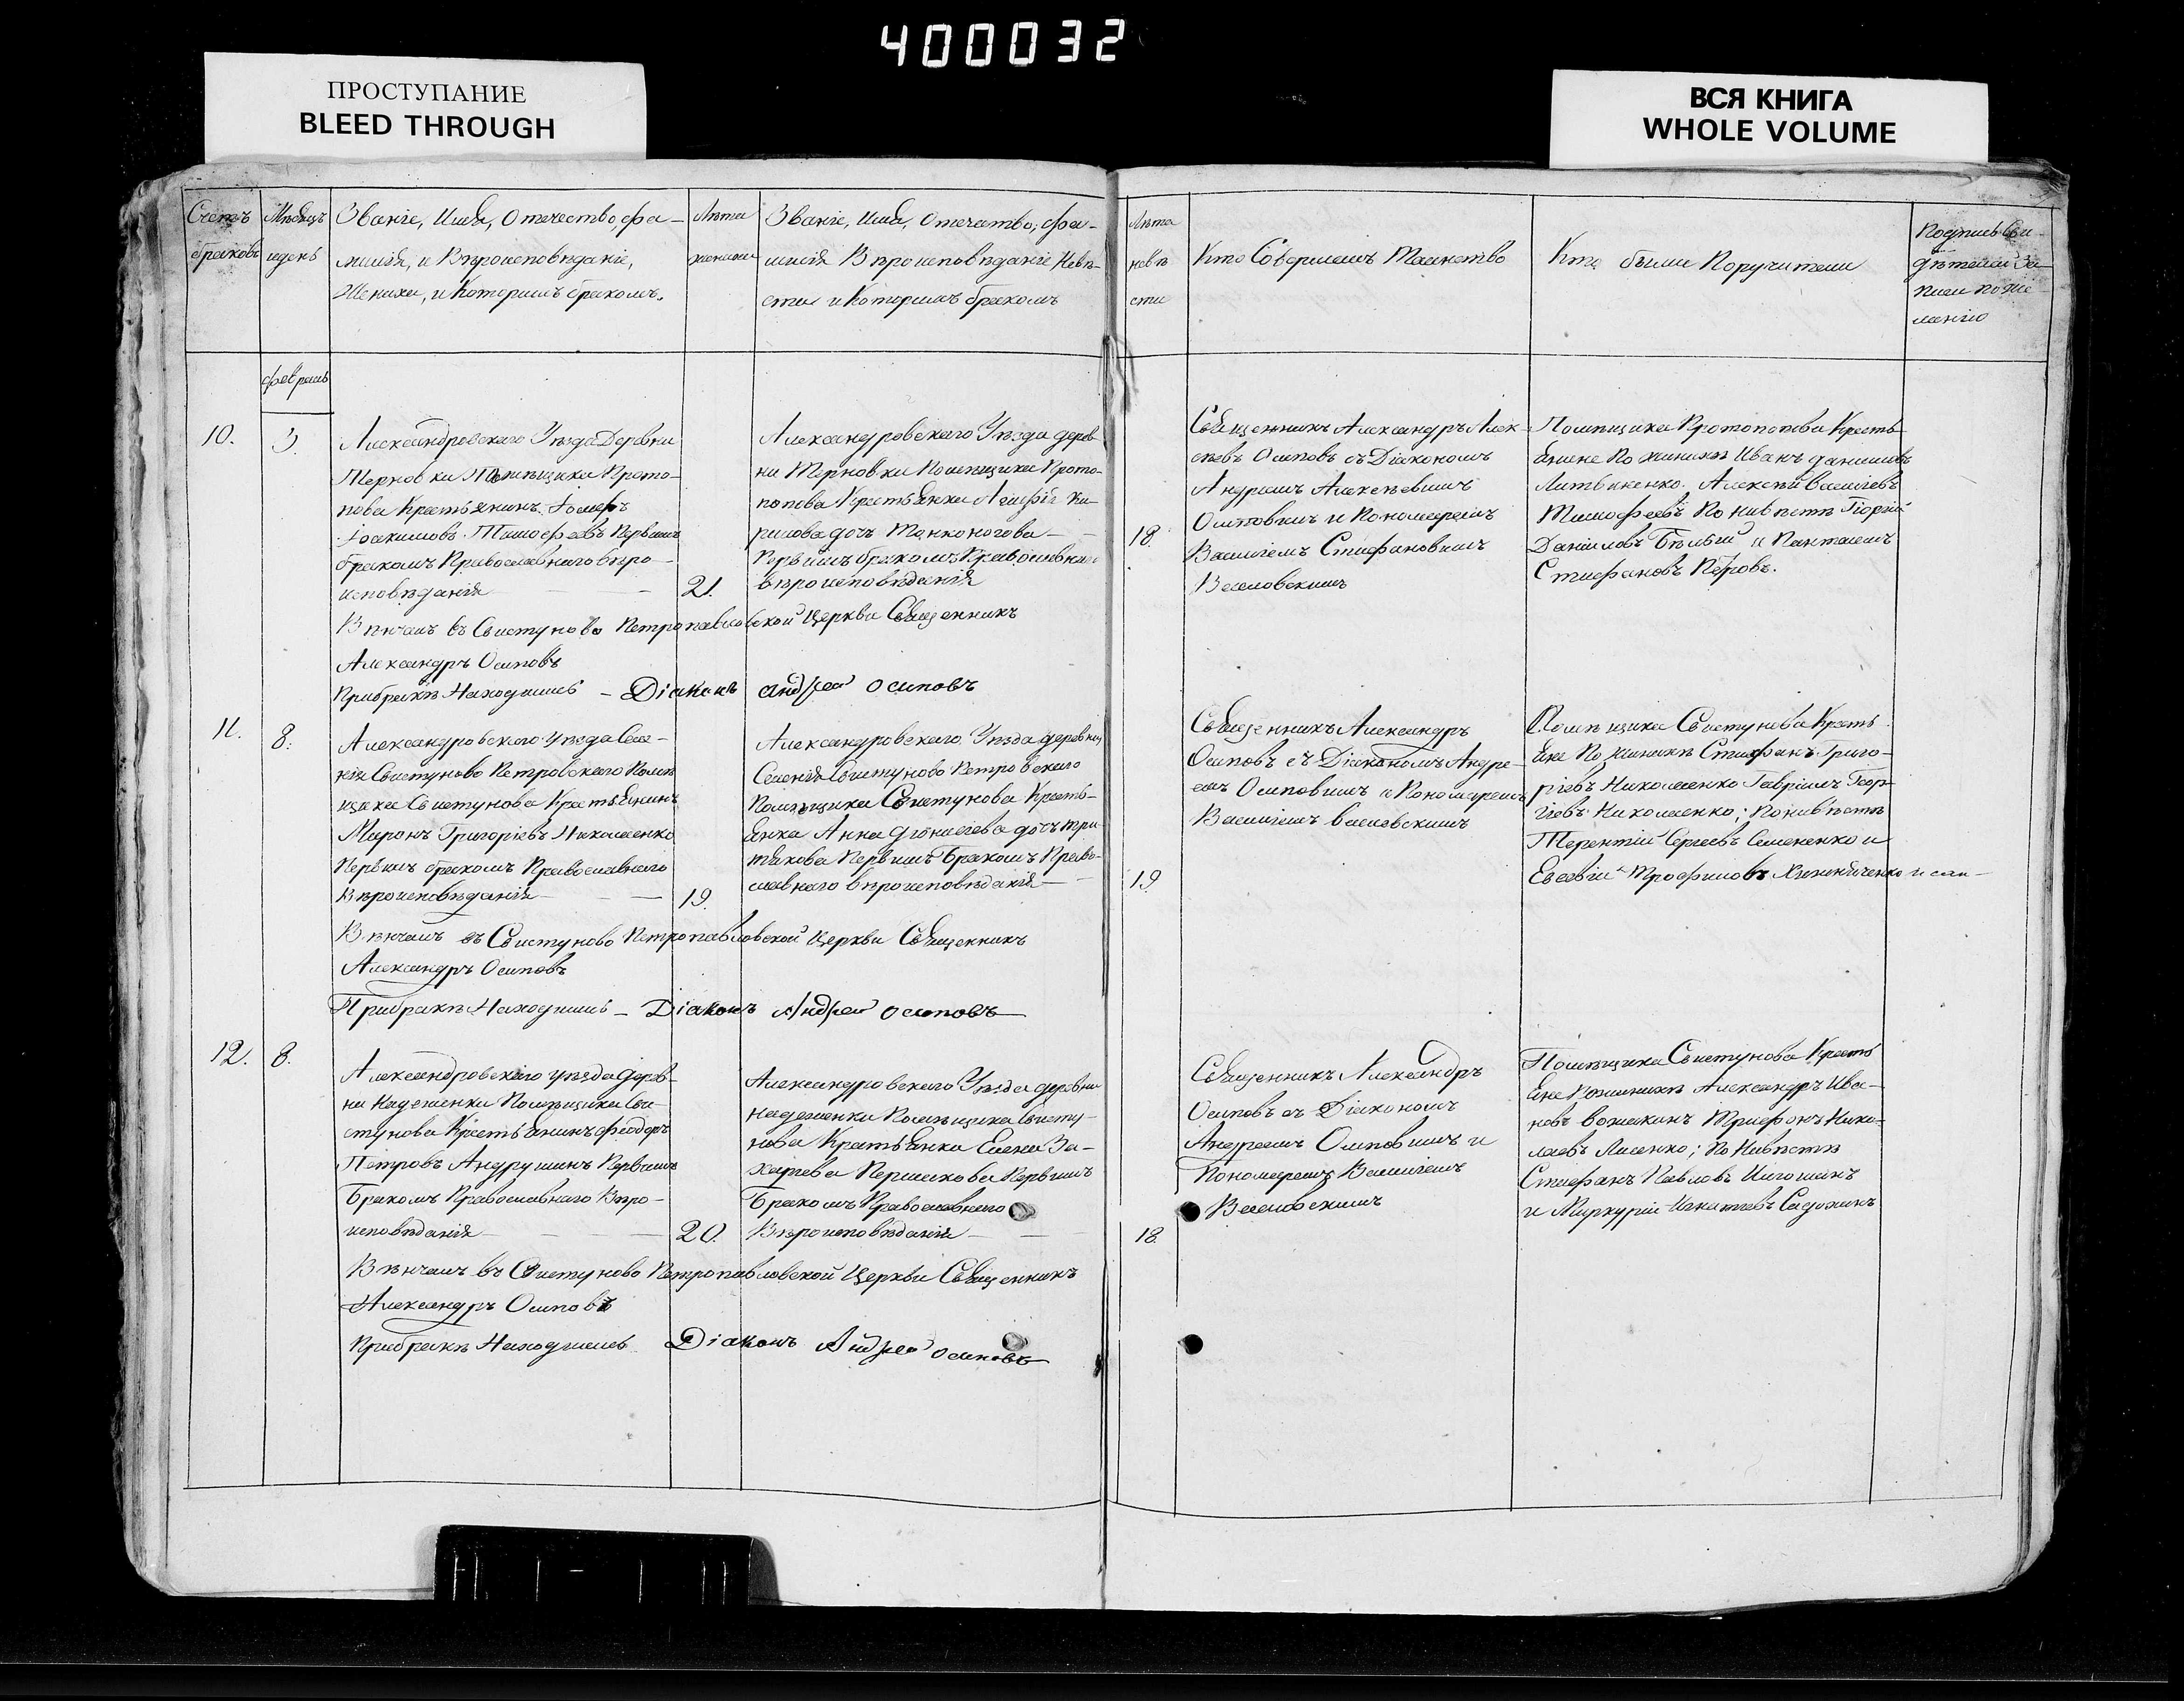 400032
ПРОСТУПАНИЕ
BLEED THROUGH
ВСЯ КНИГА
WHOLE VOLUME
Счетъ браковъ
Мѣсяцъ и день
Званіе, Имя, Отечество, фа-
милія, и Вѣроисповѣданіе,
Жениха, и Которымъ бракомъ.
Лѣта жениха
Званіе, Имя, Отечество, фа-
милія Вѣроисповѣданіе Невѣ-
сты и Которымъ бракомъ
Лѣта
невѣ
сты
Кто Совершалъ Таинство
Кто были Поручители
Подпись Сви
дѣтелей За
писи по же
ланію
февраль
10.
3.
Александровскаго Уѣзда Деревни
Терновки Помѣщика Прото-
пова Крестьянинъ
Іоакимовъ Тимофеевъ Первымъ
бракомъ Православнаго вѣро-
исповѣданія
21.
Александровскаго Уѣзда дерев
ни Терновки Помѣщика Прото-
попова Крестьянка Агафія Ки-
рилова дочь Тонконогова
Первымъ бракомъ Православнаго
вѣроисповѣданія
18.
Священникъ Александръ Алек
сѣевъ Осиповъ съ Діакономъ
Андреемъ Алексѣевымъ
Осиповымъ и Пономаремъ
Василіемъ Стефановымъ
Веселовскимъ
Помѣщика Протопопова Кресть
яне По жениху Иванъ даниловъ
Литвиненко. Алексѣй Василіевъ
Тимофеевъ По невѣстѣ Гіоргій
Даніиловъ Бѣлый и Пантелем
Стефановъ Петровъ.
Вѣнчалъ въ Свистуново Петропавловской Церкви Священникъ
Александръ Осиповъ
При бракѣ Находился - Діаконъ Андрей Осиповъ
11.
8.
Александровскаго уѣзда Селе-
нія Свистуново Петровскаго Помѣ
щика Свистунова Крестьянинъ
Миронъ Григоріевъ Николаенко
Первымъ бракомъ Православнаго
Вѣроисповѣданія
19.
Александровскаго Уѣзда деревни
Селенія Свистуново Петровскаго
Помѣщика Свистунова Кресть-
янка Анна Діонисіева дочь Тре
тякова Первымъ Бракомъ Право-
славнаго вѣроисповѣданія
19.
Священникъ Александръ
Осиповъ съ Діакономъ Андре-
емъ Осиповымъ и Пономаремъ
Василіемъ Веселовскимъ
Помѣщика Свистунова Кресть
яне По жениху Стефанъ Григо-
ріевъ Николаенко Гавріилъ Геор-
гіевъ Николаенко; По невѣстѣ
Терентій Сергеевъ Семененко и
Евсевій Трофимовъ
Вѣнчалъ въ Свистуново Петропавловской Церкви Священникъ
Александръ Осиповъ
При бракѣ Находился - Діаконъ Андрей Осиповъ
12.
8.
Александровскаго уѣзда дерев-
ни Надеженки Помѣщика Сви-
стунова Крестьянинъ Феодоръ
Петровъ Андрушинъ Первымъ
Бракомъ Православнаго Вѣро-
исповѣданія
20.
Александровскаго Уѣзда деревни
Надеженки Помѣщика Свисту-
нова Крестьянка Елена За-
харіева Первымъ
Бракомъ Православнаго
Вѣроисповѣданія
18.
Священникъ Александръ
Осиповъ съ Діакономъ
Андреемъ Осиповымъ и
Пономаремъ Василіемъ
Веселовскимъ
Помѣщика Свистунова Кресть
яне По жениху Александръ Ива-
новъ Трифонъ Нико-
лаевъ Лисенко; По Невѣстѣ
Стефанъ Павловъ
и Меркурій Игнатіевъ
Вѣнчалъ въ Свистуново Петропавловской Церкви Священникъ
Александръ Осиповъ
При бракѣ Находился Діаконъ Андрей Осиповъ